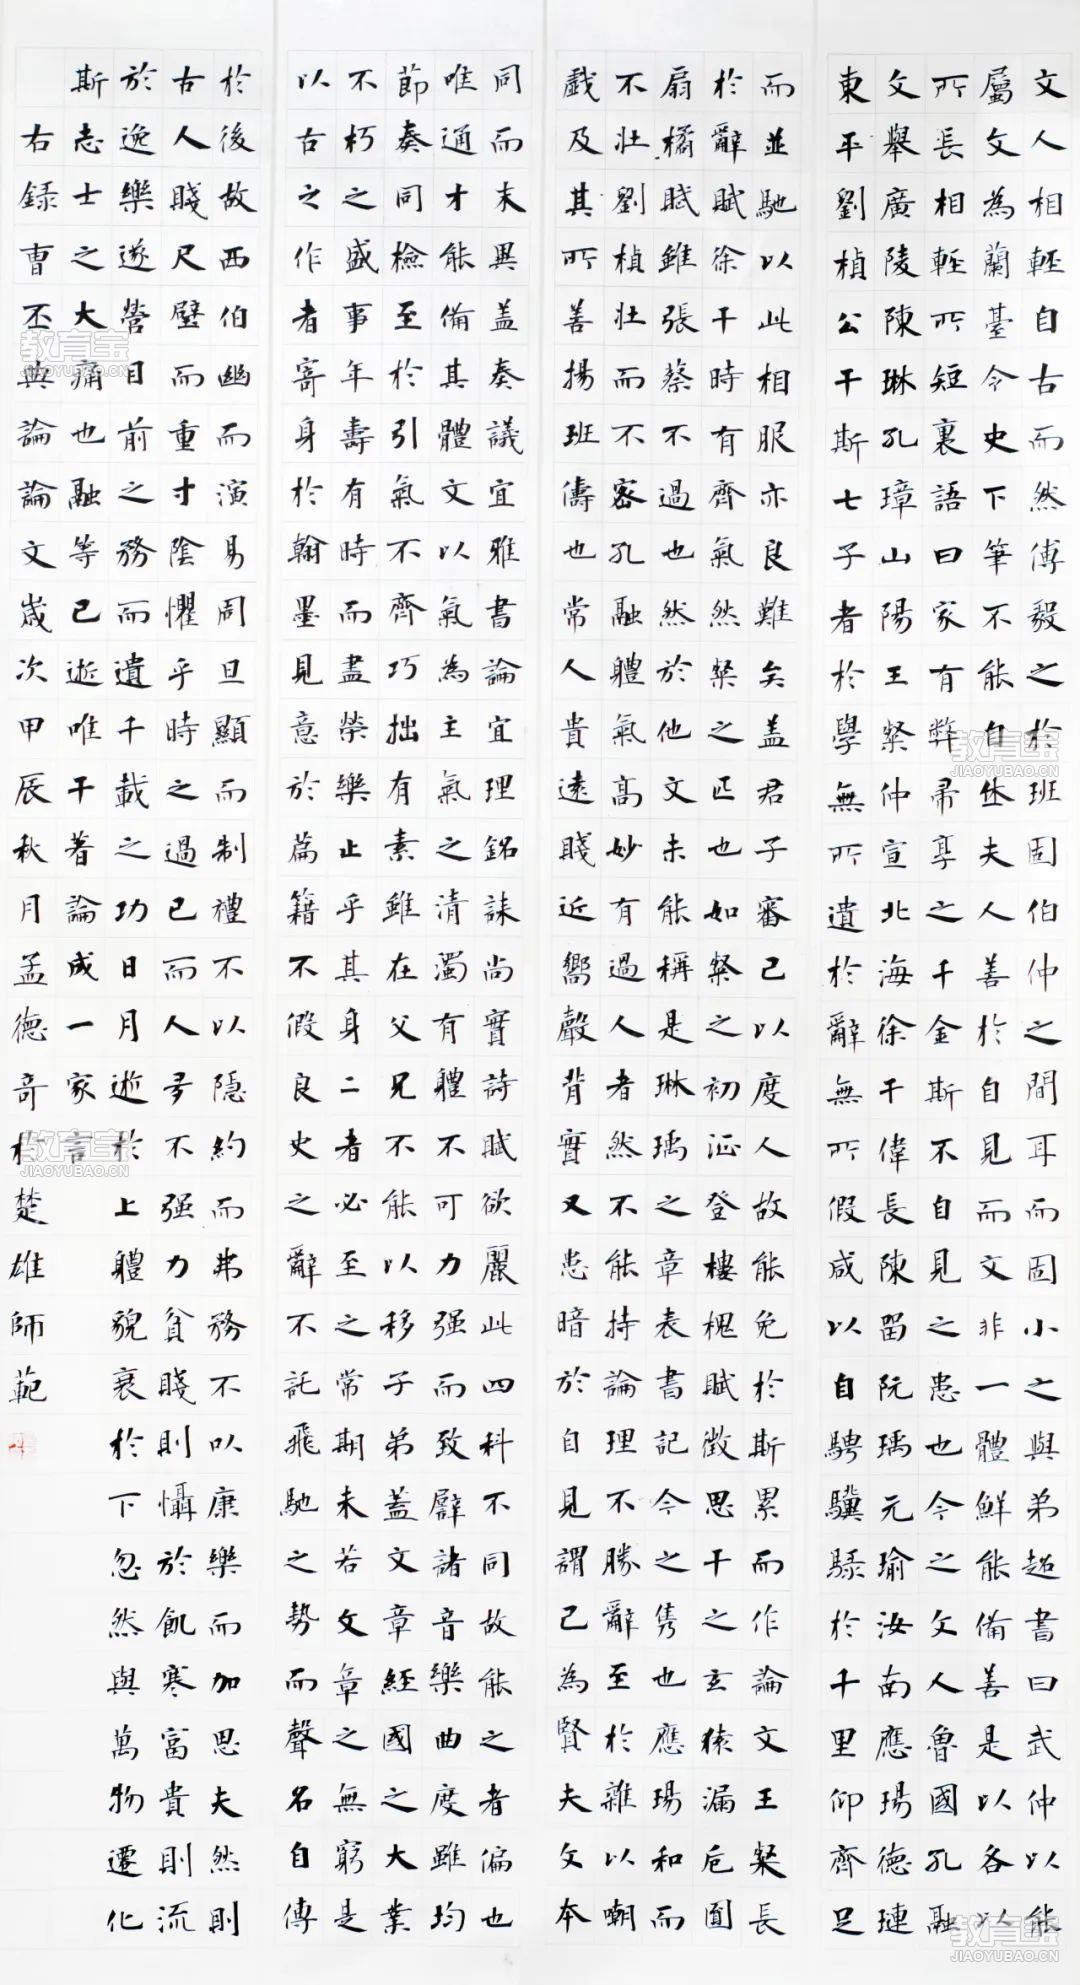 文人相輕自古而然傅毅之於班固伯仲之間耳而固小之與弟超書曰武仲以能
屬文為蘭臺令史下筆不能自休夫人善於自見而文非一體鮮能備善是以各以
所長相輕所短裏語曰家有弊帚享之千金斯不自見之患也今之文人魯國孔融
文舉廣陵陳琳孔璋山陽王粲仲宣北海徐干偉長陳留阮瑀元瑜汝南應瑒德璉
東平劉楨公干斯七子者於學無所遺於辭無所假咸以自騁驥騄於千里仰齊足
而並馳以此相服亦良難矣盖君子審己以度人故能免於斯累而作論文王粲長
於辭賦徐干時有齊氣然粲之匹也如粲之初征登樓槐賦徵思干之玄猿漏卮圓
扇橘賦雖張蔡不過也然於他文未能稱是琳瑀之章表書記今之雋也應瑒和而
不壯劉楨壯而不密孔融體氣高妙有過人者然不能持論理不勝辭至於雜以嘲
戲及其所善揚班儔也常人貴遠賤近嚮聲背實又患暗於自見謂己為賢夫文本
同而末異盖奏議宜雅書論宜理銘誄尚實詩賦欲麗此四科不同故能之者偏也
唯通才能備其體文以氣為主氣之清濁有體不可力强而致譬諸音樂曲度雖均
節奏同檢至於引氣不齊巧拙有素雖在父兄不能以移子弟盖文章經國之大業
不朽之盛事年壽有時而盡榮樂止乎其身二者必至之常期未若文章之無窮是
以古之作者寄身於翰墨見意於篇籍不假良史之辭不託飛馳之勢而聲名自傳
於後故西伯幽而演易周旦顯而制禮不以隱約而弗務不以康樂而加思夫然則
古人賤尺璧而重寸陰懼乎時之過已而人多不强力貧賤則懾於飢寒富貴則流
於逸樂遂營目前之務而遺千載之功日月逝於上體貌衰於下忽然與萬物遷化
斯志士之大痛也融等已逝唯干著論成一家言
右録曹丕典論論文歲次甲辰秋月孟德奇於楚雄師範
教育宝
JIAOYUBAO.CN
教育宝
JIAOYUBAO.CN
教育宝
JIAOYUBAO.CN
教育宝
JIAOYUBAO.CN